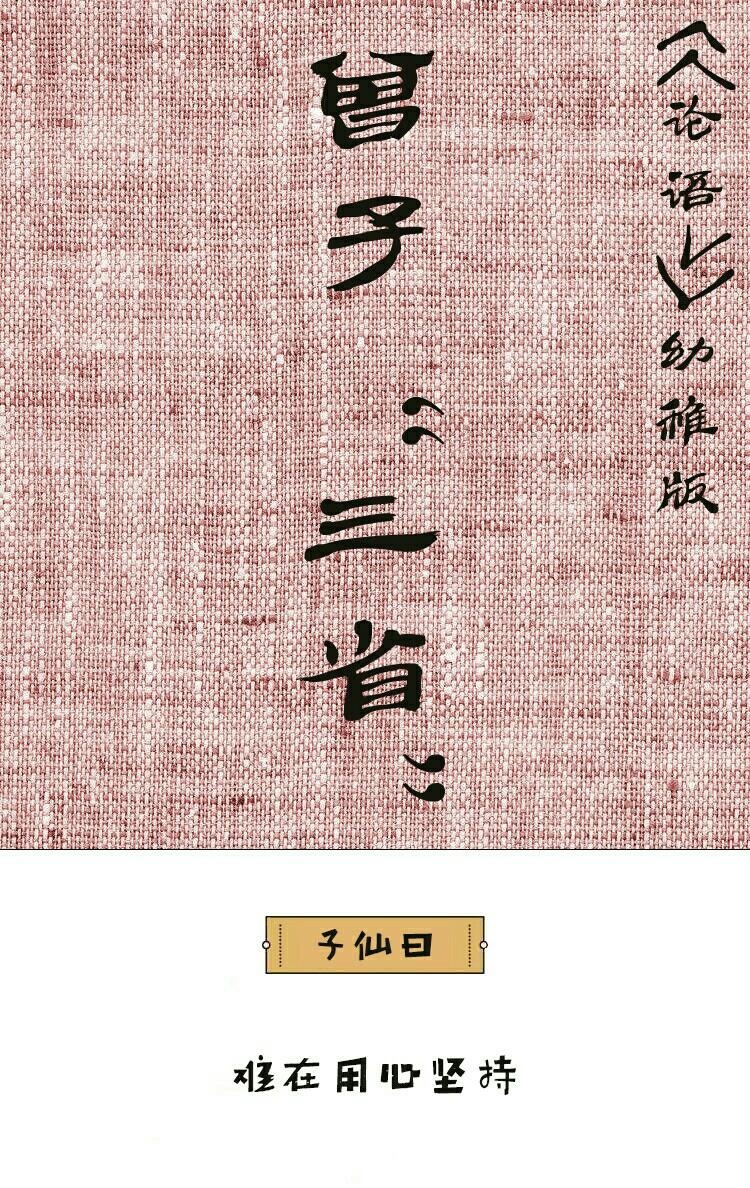 《论语》幼稚版
曾子“三省”
子仙曰
难在用心坚持